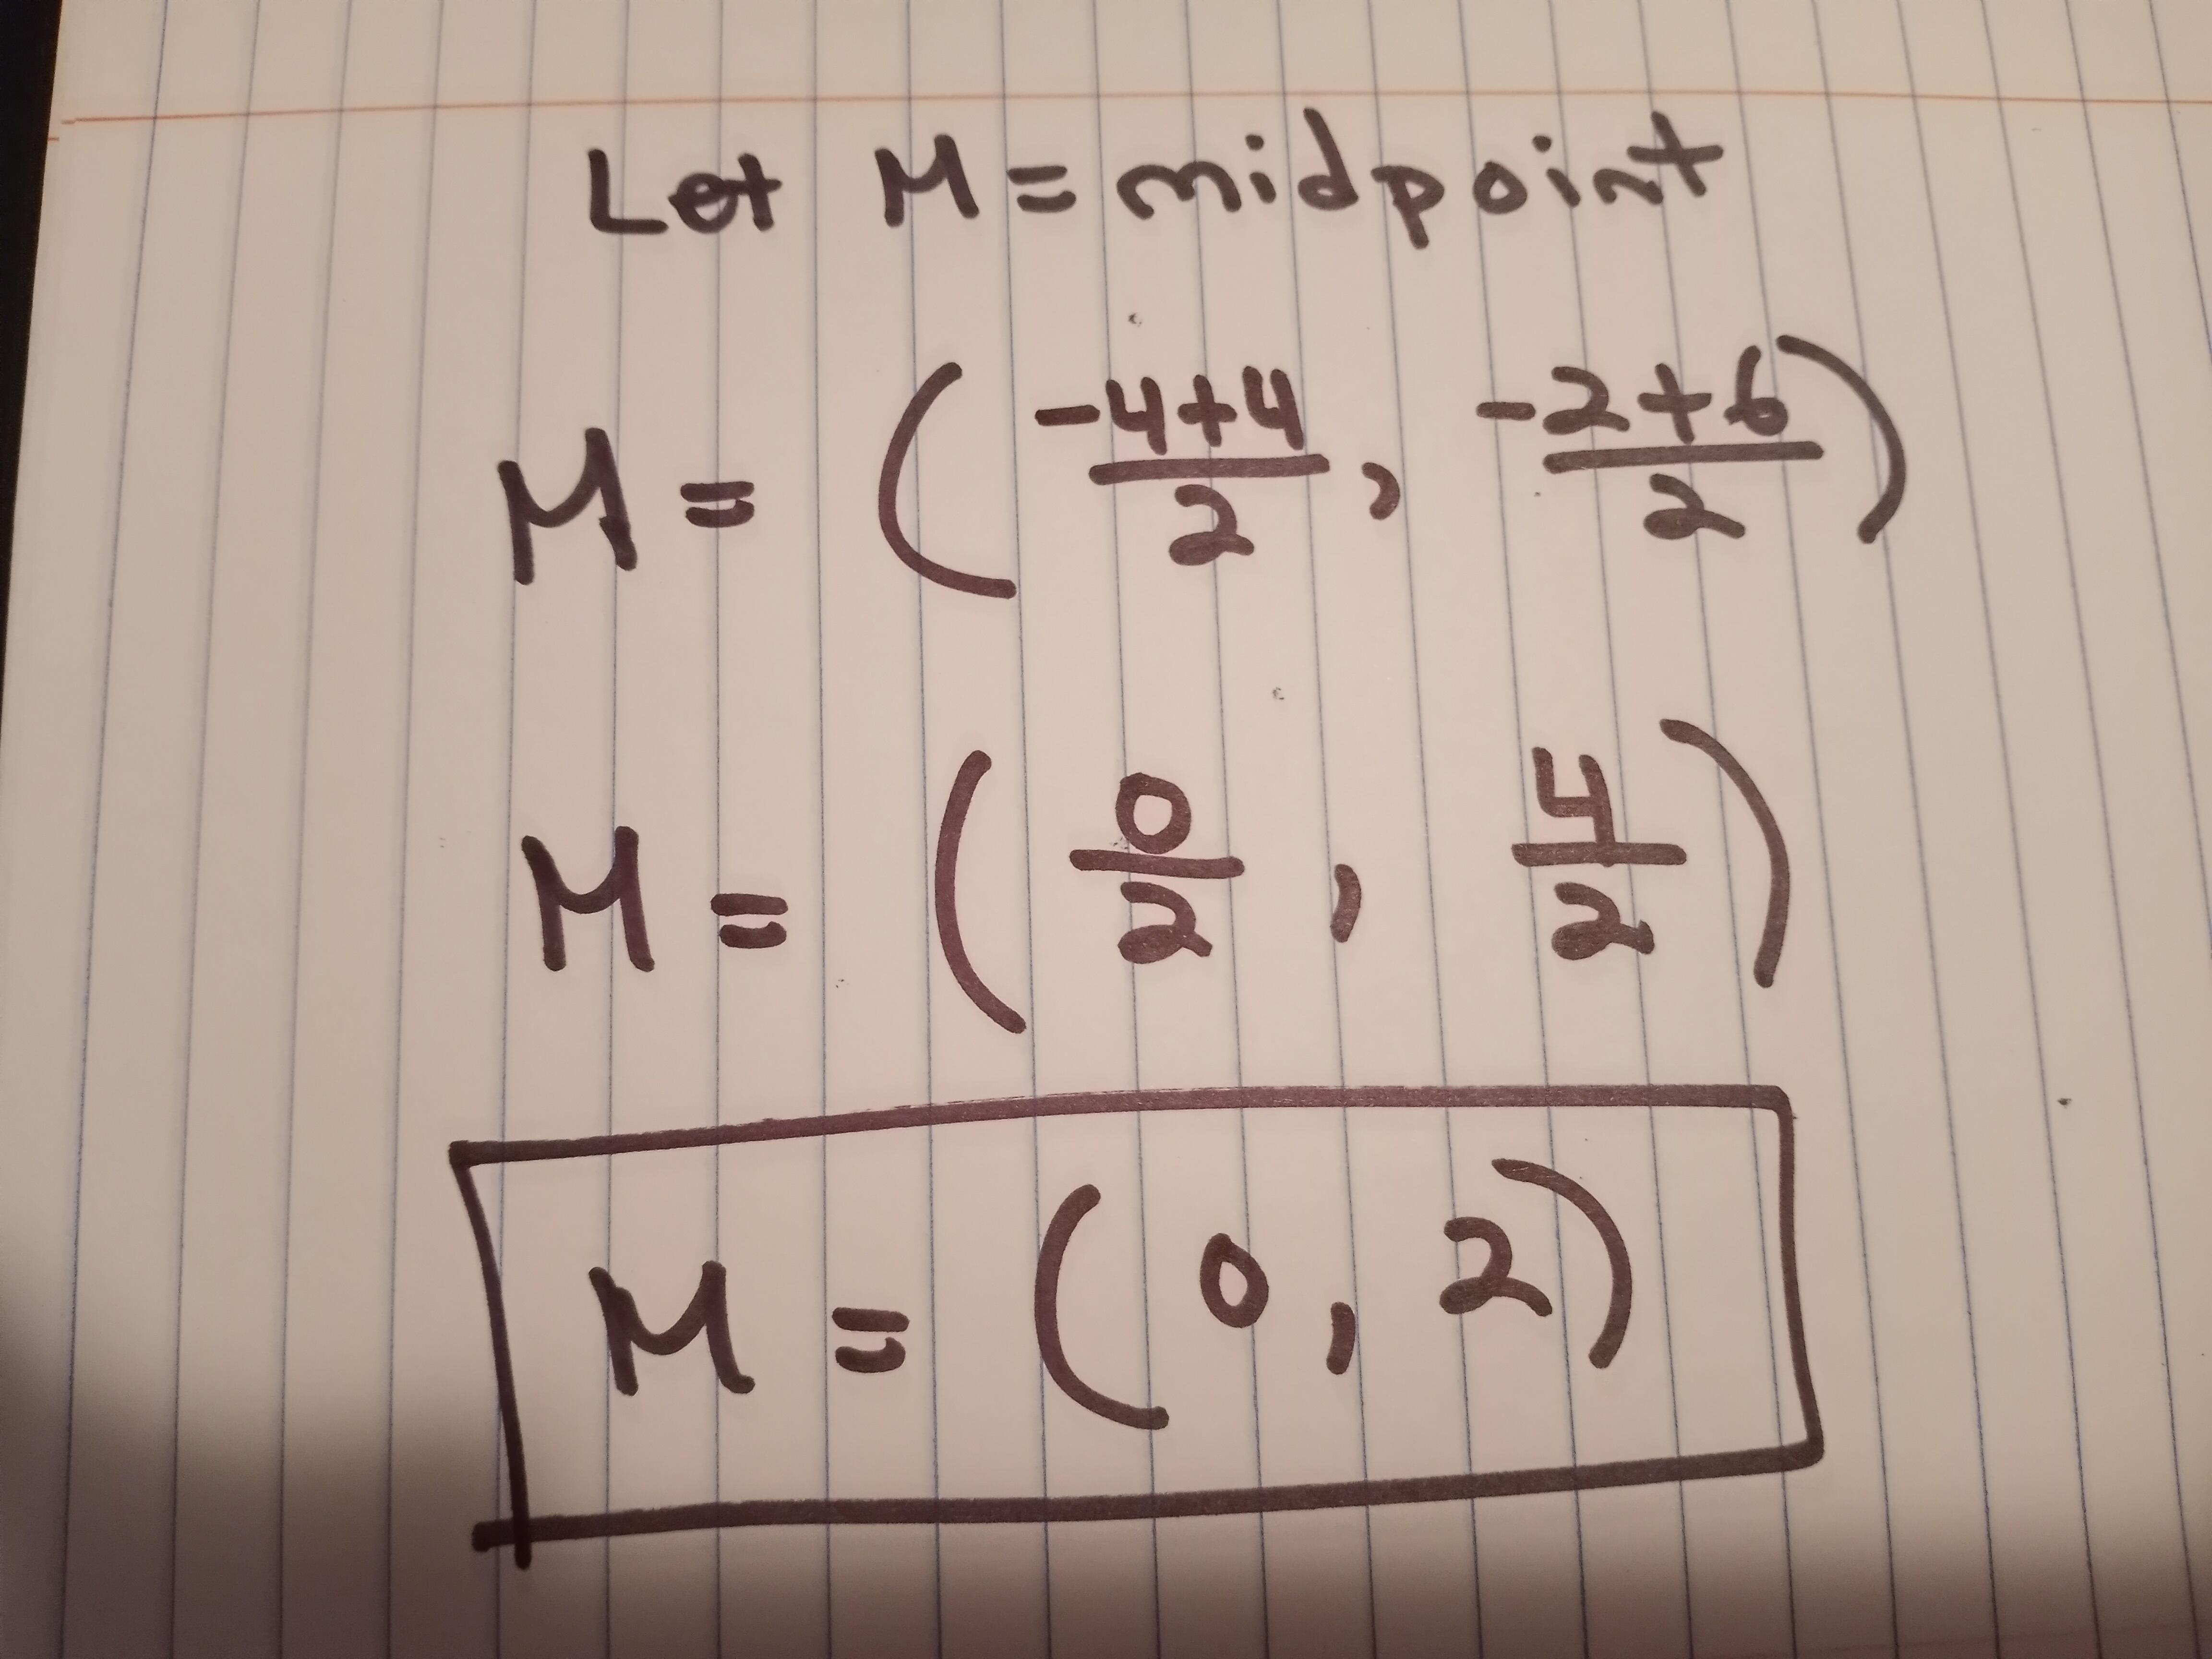 Let M = midpoint
M = ( -4+4/2 , -2+6/2 )
M = ( 0/2 , 4/2 )
M = ( 0 , 2 )